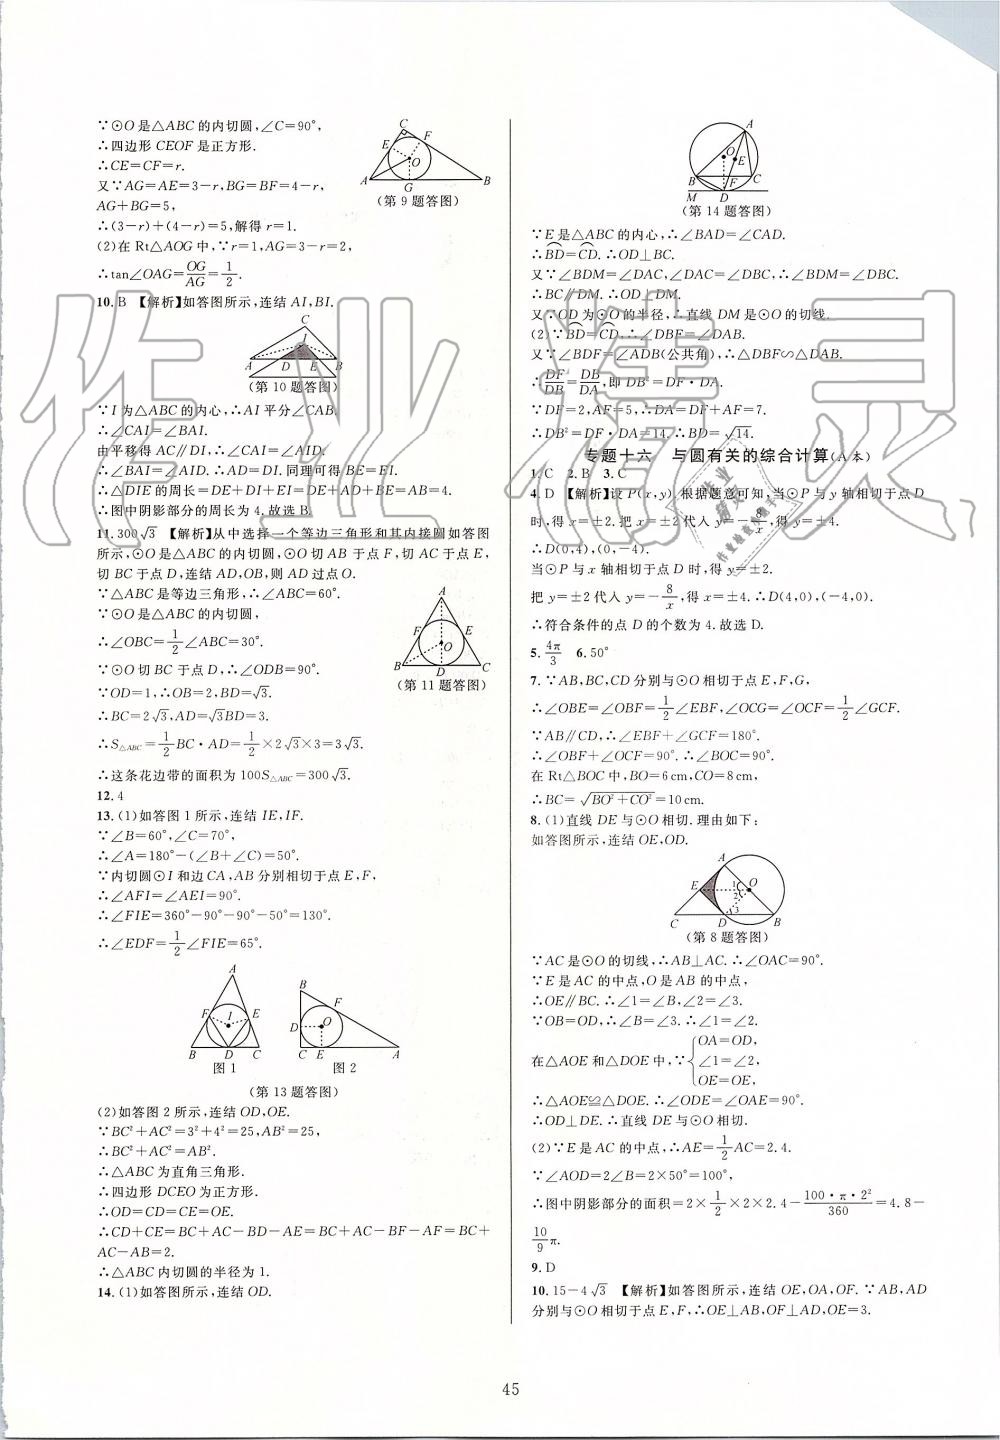 ∵⊙O是△ABC的内切圆,∠C=90°,
∴四边形CEOF是正方形.
∴CE=CF=r.
又∵AG=AE=3-r,BG=BF=4-r,
AG+BG=5,
∴(3-r)+(4-r)=5,解得r=1.
(2)在Rt△AOG中,∵r=1,AG=3-r=2,
∴tan∠OAG=OG/AG=1/2.
C
F
E
O
A
G
B
(第9题答图)
10.B 【解析】如答图所示,连结AI,BI.
C
I
A D E B
(第10题答图)
∵I为△ABC的内心,∴AI平分∠CAB.
∴∠CAI=∠BAI.
由平移得AC∥DI,∴∠CAI=∠AID.
∴∠BAI=∠AID.∴AD=DI.同理可得BE=EI.
∴△DIE的周长=DE+DI+EI=DE+AD+BE=AB=4.
∴图中阴影部分的周长为4.故选B.
11.300√3 【解析】从中选择一个等边三角形和其内接圆如答图
所示,⊙O是△ABC的内切圆,⊙O切AB于点F,切AC于点E,
切BC于点D,连结AD,OB,则AD过点O.
∵△ABC是等边三角形,∴∠ABC=60°.
∵⊙O是△ABC的内切圆,
∴∠OBC=1/2∠ABC=30°.
∵⊙O切BC于点D,∴∠ODB=90°.
∵OD=1,∴OB=2,BD=√3.
∴BC=2√3,AD=√3BD=3.
∴S△ABC=1/2BC·AD=1/2×2√3×3=3√3.
∴这条花边带的面积为100S△ABC=300√3.
A
F E
O
B D C
(第11题答图)
12.4
13.(1)如答图1所示,连结IE,IF.
∵∠B=60°,∠C=70°,
∴∠A=180°-(∠B+∠C)=50°.
∵内切圆⊙I和边CA,AB分别相切于点E,F,
∴∠AFI=∠AEI=90°.
∴∠FIE=360°-90°-90°-50°=130°.
∴∠EDF=1/2∠FIE=65°.
A
F I E
B D C
图1
B
F
D O
C E A
图2
(第13题答图)
(2)如答图2所示,连结OD,OE.
∵BC²+AC²=3²+4²=25,AB²=25,
∴BC²+AC²=AB².
∴△ABC为直角三角形.
∴四边形DCEO为正方形.
∴OD=CD=CE=OE.
∴CD+CE=BC+AC-BD-AE=BC+AC-BF-AF=BC+
AC-AB=2.
∴△ABC内切圆的半径为1.
14.(1)如答图所示,连结OD.
A
O
E
B F C
M D
(第14题答图)
∵E是△ABC的内心,∴∠BAD=∠CAD.
∴BD=CD.∴OD⊥BC.
又∵∠BDM=∠DAC,∠DAC=∠DBC,∴∠BDM=∠DBC.
∴BC∥DM.∴OD⊥DM.
又∵OD为⊙O的半径,∴直线DM是⊙O的切线.
(2)∵BD=CD,∴∠DBF=∠DAB.
又∵∠BDF=∠ADB(公共角),∴△DBF∽△DAB.
∴DF/DB=DB/DA,即DB²=DF·DA.
∵DF=2,AF=5,∴DA=DF+AF=7.
∴DB²=DF·DA=14.∴DB=√14.
专题十六 与圆有关的综合计算(A本)
1.C 2.B 3.C
4.D 【解析】设P(x,y).根据题意可知,当⊙P与y轴相切于点D
时,得x=±2.把x=±2代入y=-8/x,得y=±4.
∴D(0,4),(0,-4).
当⊙P与x轴相切于点D时,得y=±2.
把y=±2代入y=-8/x,得x=±4.∴D(4,0),(-4,0).
∴符合条件的点D的个数为4.故选D.
5.4π/3 6.50°
7.∵AB,BC,CD分别与⊙O相切于点E,F,G,
∴∠OBE=∠OBF=1/2∠EBF,∠OCG=∠OCF=1/2∠GCF.
∵AB∥CD,∴∠EBF+∠GCF=180°.
∴∠OBF+∠OCF=90°.∴∠BOC=90°.
在Rt△BOC中,BO=6cm,CO=8cm,
∴BC=√(BO²+CO²)=10cm.
8.(1)直线DE与⊙O相切.理由如下:
如答图所示,连结OE,OD.
A
E 1 O
2
3
C D B
(第8题答图)
∵AC是⊙O的切线,∴AB⊥AC.∴∠OAC=90°.
∵E是AC的中点,O是AB的中点,
∴OE∥BC.∴∠1=∠B,∠2=∠3.
∵OB=OD,∴∠B=∠3.∴∠1=∠2.
在△AOE和△DOE中,∵{OA=OD,
∠1=∠2,
OE=OE,
∴△AOE≌△DOE.∴∠ODE=∠OAE=90°.
∴OD⊥DE.∴直线DE与⊙O相切.
(2)∵E是AC的中点,∴AE=1/2AC=2.4.
∵∠AOD=2∠B=2×50°=100°,
∴图中阴影部分的面积=2×1/2×2×2.4-100·π·2²/360=4.8-
10/9π.
9.D
10.15-4√3 【解析】如答图所示,连结OE,OA,OF.∵AB,AD
分别与⊙O相切于点E,F,∴OE⊥AB,OF⊥AD,OE=3.
45
作业精灵